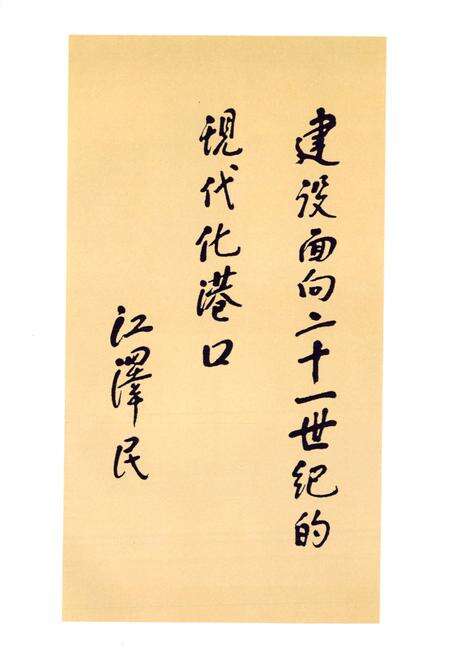 建设面向二十一世纪的
現代化港口
江澤民